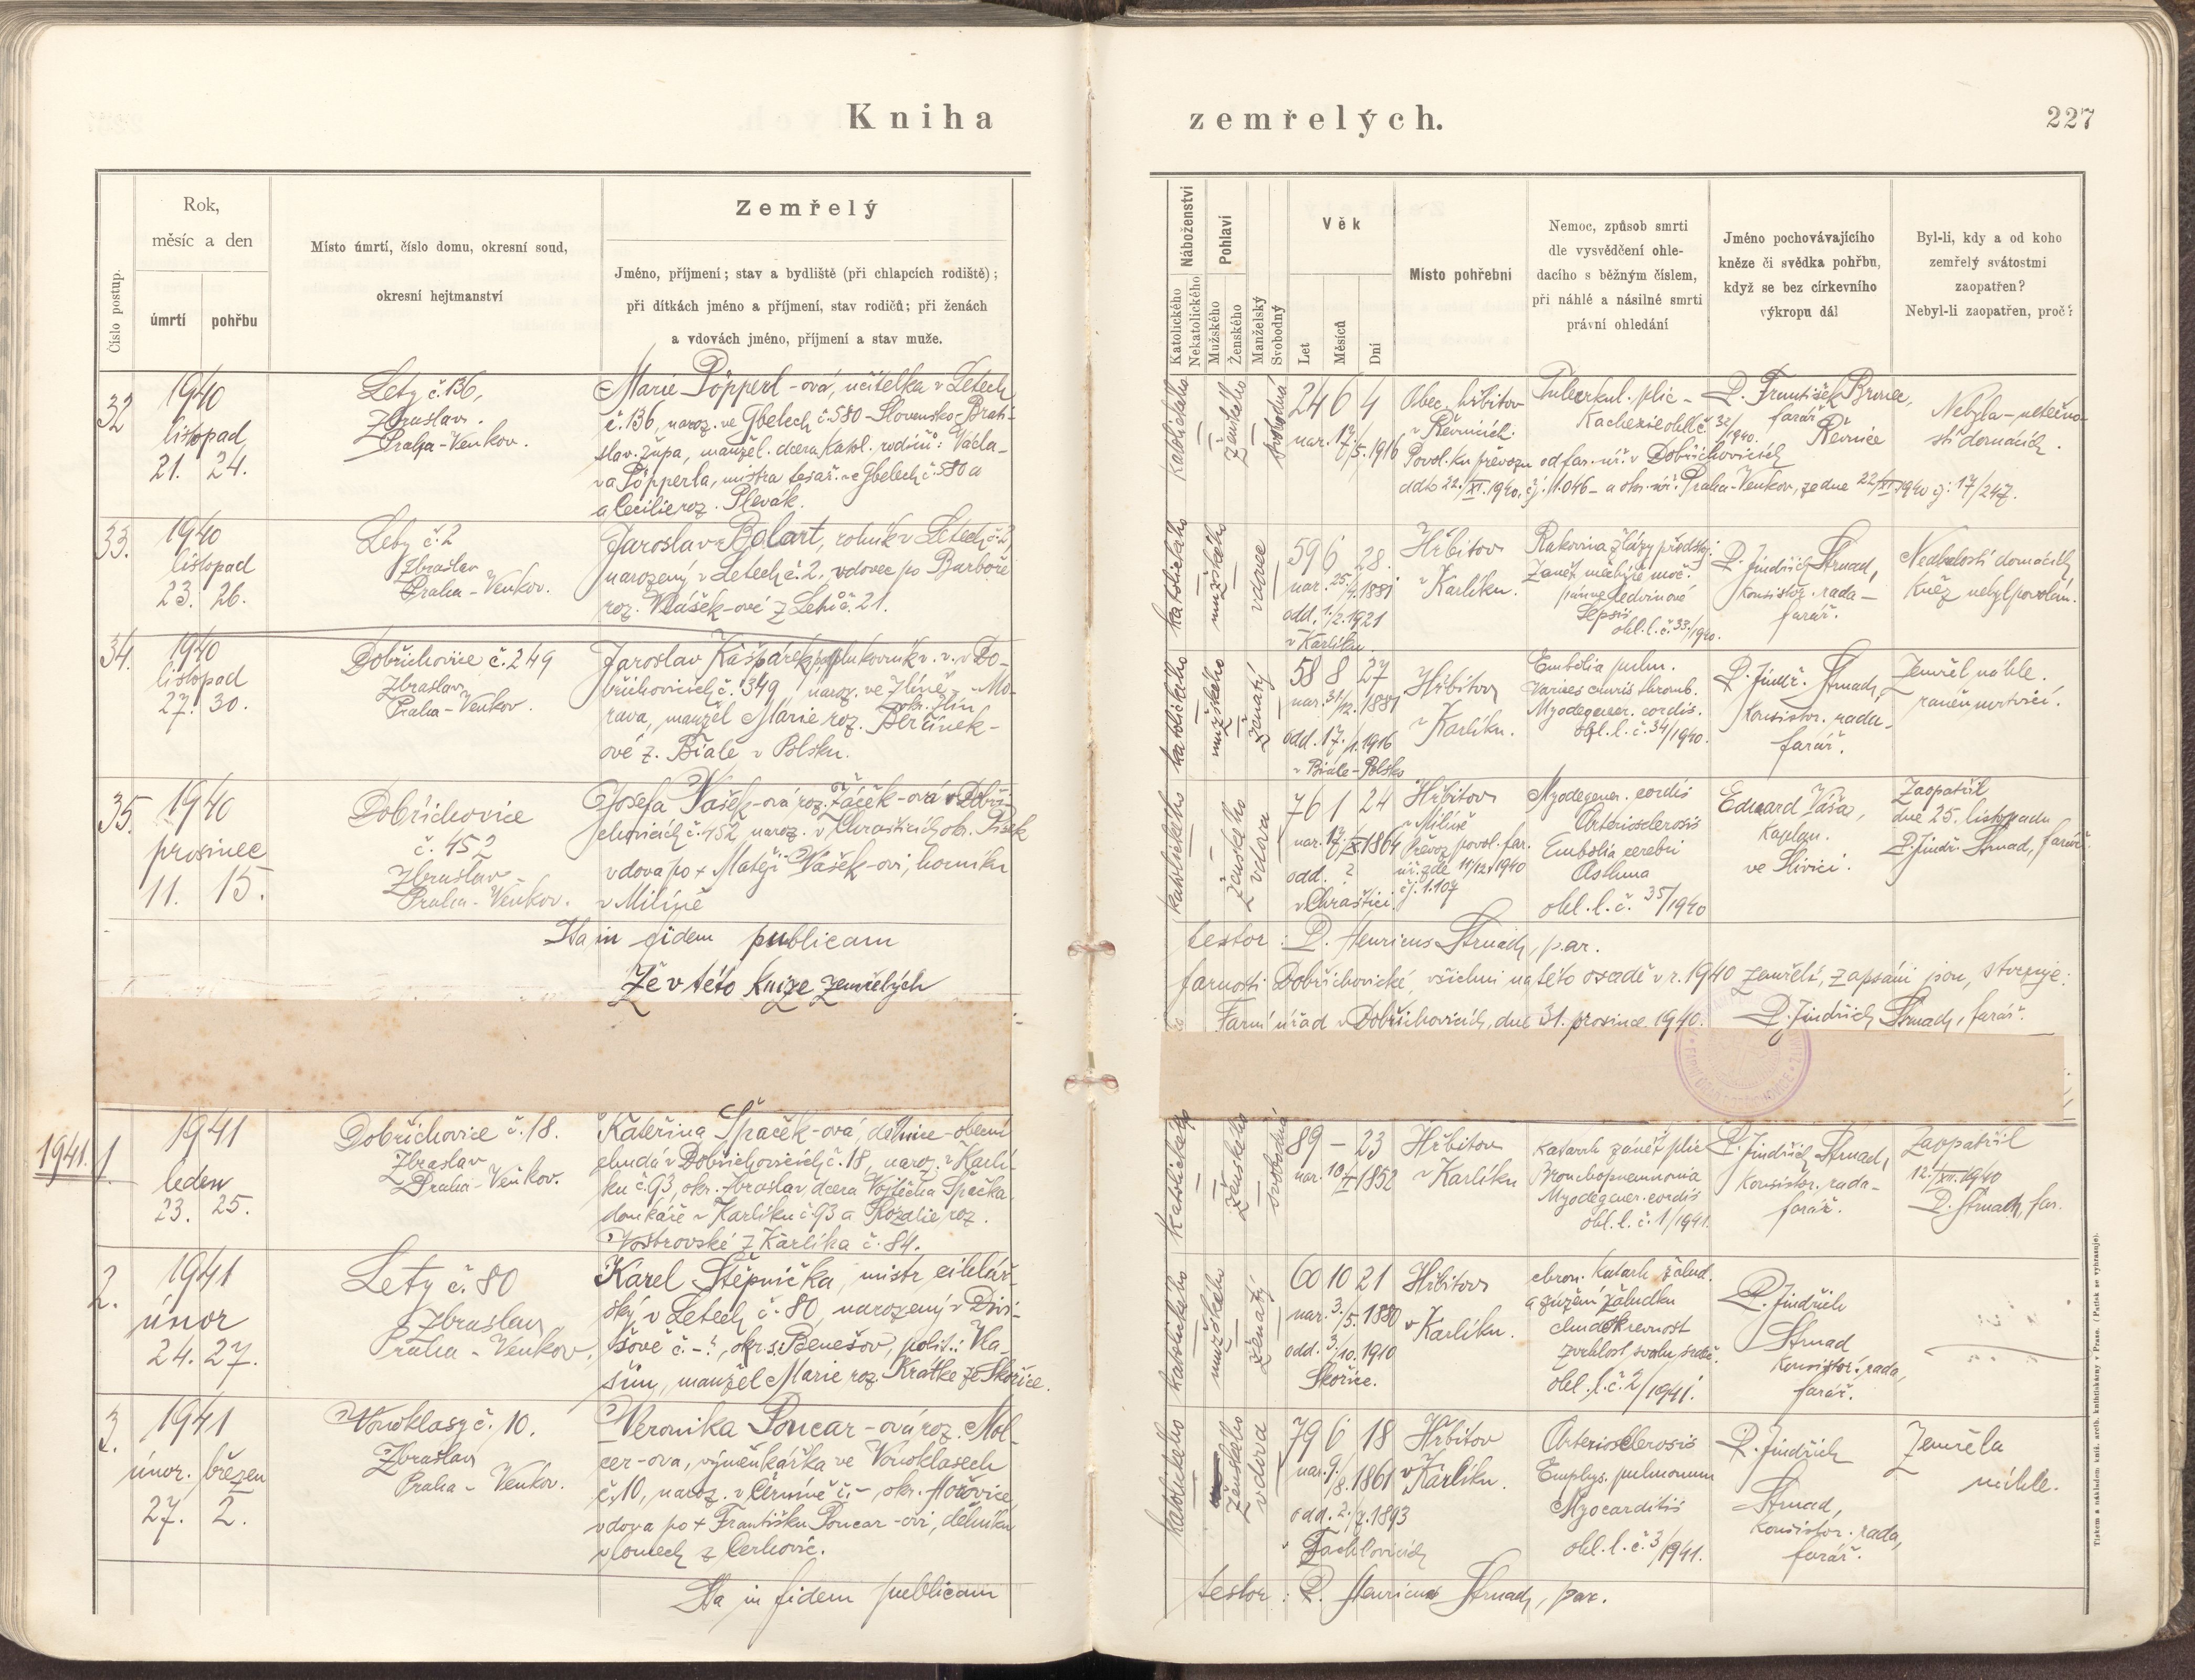 Kniha zemřelých.
227
Číslo postup.
Rok,
měsíc a den
úmrtí pohřbu
Místo úmrtí, číslo domu, okresní soud,
okresní hejtmanství
Zemřelý
Jméno, příjmení; stav a bydliště (při chlapcích rodiště);
při dítkách jméno a příjmení, stav rodičů; při ženách
a vdovách jméno, příjmení a stav muže.
Náboženství
Katolického
Nekatolického
Pohlaví
Mužského
Ženského
Manželský
Svobodný
Věk
Let
Měsíců
Dní
Místo pohřební
Nemoc, způsob smrti
dle vysvědčení ohle-
dacího s běžným číslem,
při náhlé a násilné smrti
právní ohledání
Jméno pochovávajícího
kněze či svědka pohřbu,
když se bez církevního
výkropu dál
Byl-li, kdy a od koho
zemřelý svátostmi
zaopatřen?
Nebyl-li zaopatřen, proč?
32
1940
listopad
21. 24.
Lety č. 136,
Zbraslav.
Praha-Venkov.
Marie Pöpperl-ová, učitelka v Letech
č. 136, naroz. ve Gbelech č. 580 - Slovensko - Brati-
slav. župa, manžel. dcera katol. rodičů: Václa-
va Pöpperla, mistra tesař. ve Gbelech č. 580 a
a Cecilie roz. Plevák.
katolického
ženského
svobodná
24 6 4
nar. 17/5. 1916
Obec. hřbitov
v Řevnicích.
Tuberkul. plic -
Kachexie ohl. č. 32/1940.
P. František
farář
Řevnice
Nebyla - netečno-
stí domácích.
Povol. ku převozu od far. úř. v Dobřichovicích
ddto 22./XI. 1940, čj. 1.046 - a okr. úř. Praha-Venkov, ze dne 22/XI 1940 čj. 17/247.
33.
1940
listopad
23. 26.
Lety č. 2
Zbraslav
Praha-Venkov.
Jaroslav Bolart, rolník v Letech č. 2,
narozený v Letech č. 2. vdovec po Barboře
roz. Vlášek-ové z Letů č. 21.
katolického
mužského
vdovec
59 6 28.
nar. 25./4. 1881
odd. 1./2. 1921
v Karlíku
Hřbitov
v Karlíku.
Rakovina žlázy předstoj.
Zánět měchýře moč.
pánve ledvinové
Sepsis
ohl. l. č. 33/1940.
P. Jindřich Strnad,
konsistoř. rada -
farář.
Nedbalostí domácích
kněz nebyl povolán.
34.
1940
listopad
27. 30.
Dobřichovice č. 249
Zbraslav
Praha-Venkov.
Jaroslav Kašpárek, podplukovník v. v. v Do-
břichovicích č. 349, naroz. ve Zlíně - Mo-
okr. Zlín
rava, manžel Marie roz.
ové z. Biale v Polsku.
katolického
mužského
ženatý
58 8 27
nar. 31/12. 1881
odd. 17./1. 1916
v Biale-Polsko
Hřbitov
v Karlíku.
Embolia pulm.
Varices cruris thromb.
Myodegener. cordis.
ohl. l. č. 34/1940.
P. Jindř. Strnad,
konsistor. rada -
farář.
Zemřel náhle.
raněn mrtvicí.
35.
1940
prosinec
11. 15.
Dobřichovice
č. 452
Zbraslav -
Praha-Venkov.
Josefa Vašek-ová roz. Žáček-ová v Dobři-
chovicích č. 452, naroz. v Chrašticích, okr. Písek
vdova po + Matěji Vašek-ovi, horníku
v Milíně
katolického
ženského
vdova
76 1 24
nar. 17/X 1864
odd. ?
v Chraštici.
Hřbitov
v Milíně
Převoz povol. far.
úř. zde 11/12. 1940
čj. 1.107
Myodegener. cordis
Arteriosclerosis
Embolia cerebri
Asthma
ohl. l. č. 35/1940
Eduard Váša,
kaplan.
ve Slivici.
Zaopatřil
dne 25. listopadu
P. Jindř. Strnad, farář.
Ita in fidem publicam
testor: P. Henricus Strnad, par.
Že v této knize zemřelých
farnosti Dobřichovické, všichni na této osadě v r. 1940 zemřelí, zapsáni jsou, stvrzuje:
Farní úřad v Dobřichovicích, dne 31. prosince 1940. P. Jindřich Strnad, farář.
1941. 1.
1941
leden
23. 25.
Dobřichovice č. 18.
Zbraslav
Praha-Venkov.
Kateřina Špaček-ová, dělnice - obecní
chudá v Dobřichovicích č. 18, naroz. v Karlí-
ku č. 93, okr. Zbraslav, dcera Vojtěcha Špačka
domkáře v Karlíku č. 93 a Rozalie roz.
Vostrovské z Karlíka č. 84.
katolického
ženského
svobodná
89 - 23
nar. 10/I 1852
Hřbitov
v Karlíku
Katarh zánět plic
Bronchopneumonia
Myodegener. cordis
ohl. l. č. 1/1941.
P. Jindřich Strnad,
konsistor. rada -
farář.
Zaopatřil
12./XII. 1940
P. Strnad, far.
2.
1941
únor
24. 27.
Lety č. 80
Zbraslav
Praha-Venkov.
Karel Štěpnička, mistr cihlář-
ský v Letech č. 80, narozený v Divi-
šově č. -?, okr. s. Benešov, polit.: Vla-
šim, manžel Marie roz. Krátké ze Skořice.
katolického
mužského
ženatý
60 10 21
nar. 3./5. 1880
odd. 3/10. 1910
Skořice.
Hřbitov
v Karlíku.
chron. katarh žalud.
a zúžení žaludku
chudokrevnost
zvrhlost svalu srdeč.
ohl. l. č. 2/1941.
P. Jindřich
Strnad
konsistor. rada,
farář.
3.
1941
únor. březen
27. 2.
Vonoklasy č. 10.
Zbraslav
Praha-Venkov.
Veronika Poncar-ová roz. Mol-
cer-ova, výměnkářka ve Vonoklasech
č. 10, naroz. v č. -, okr. Hořovice,
vdova po + Františku Poncar-ovi, dělníku
v lomech z Cerhovic.
katolického
ženského
vdova
79 6 18
nar. 9./8. 1861
odd. 2./7. 1893
v Tachlovicích
Hřbitov
v Karlíku.
Arteriosclerosis
Emphys. pulmonum
Myocarditis
ohl. l. č. 3/1941.
P. Jindřich
Strnad,
konsistor. rada,
farář.
Zemřela
náhle.
Ita in fidem publicam
testor: P. Henricus Strnad, par.